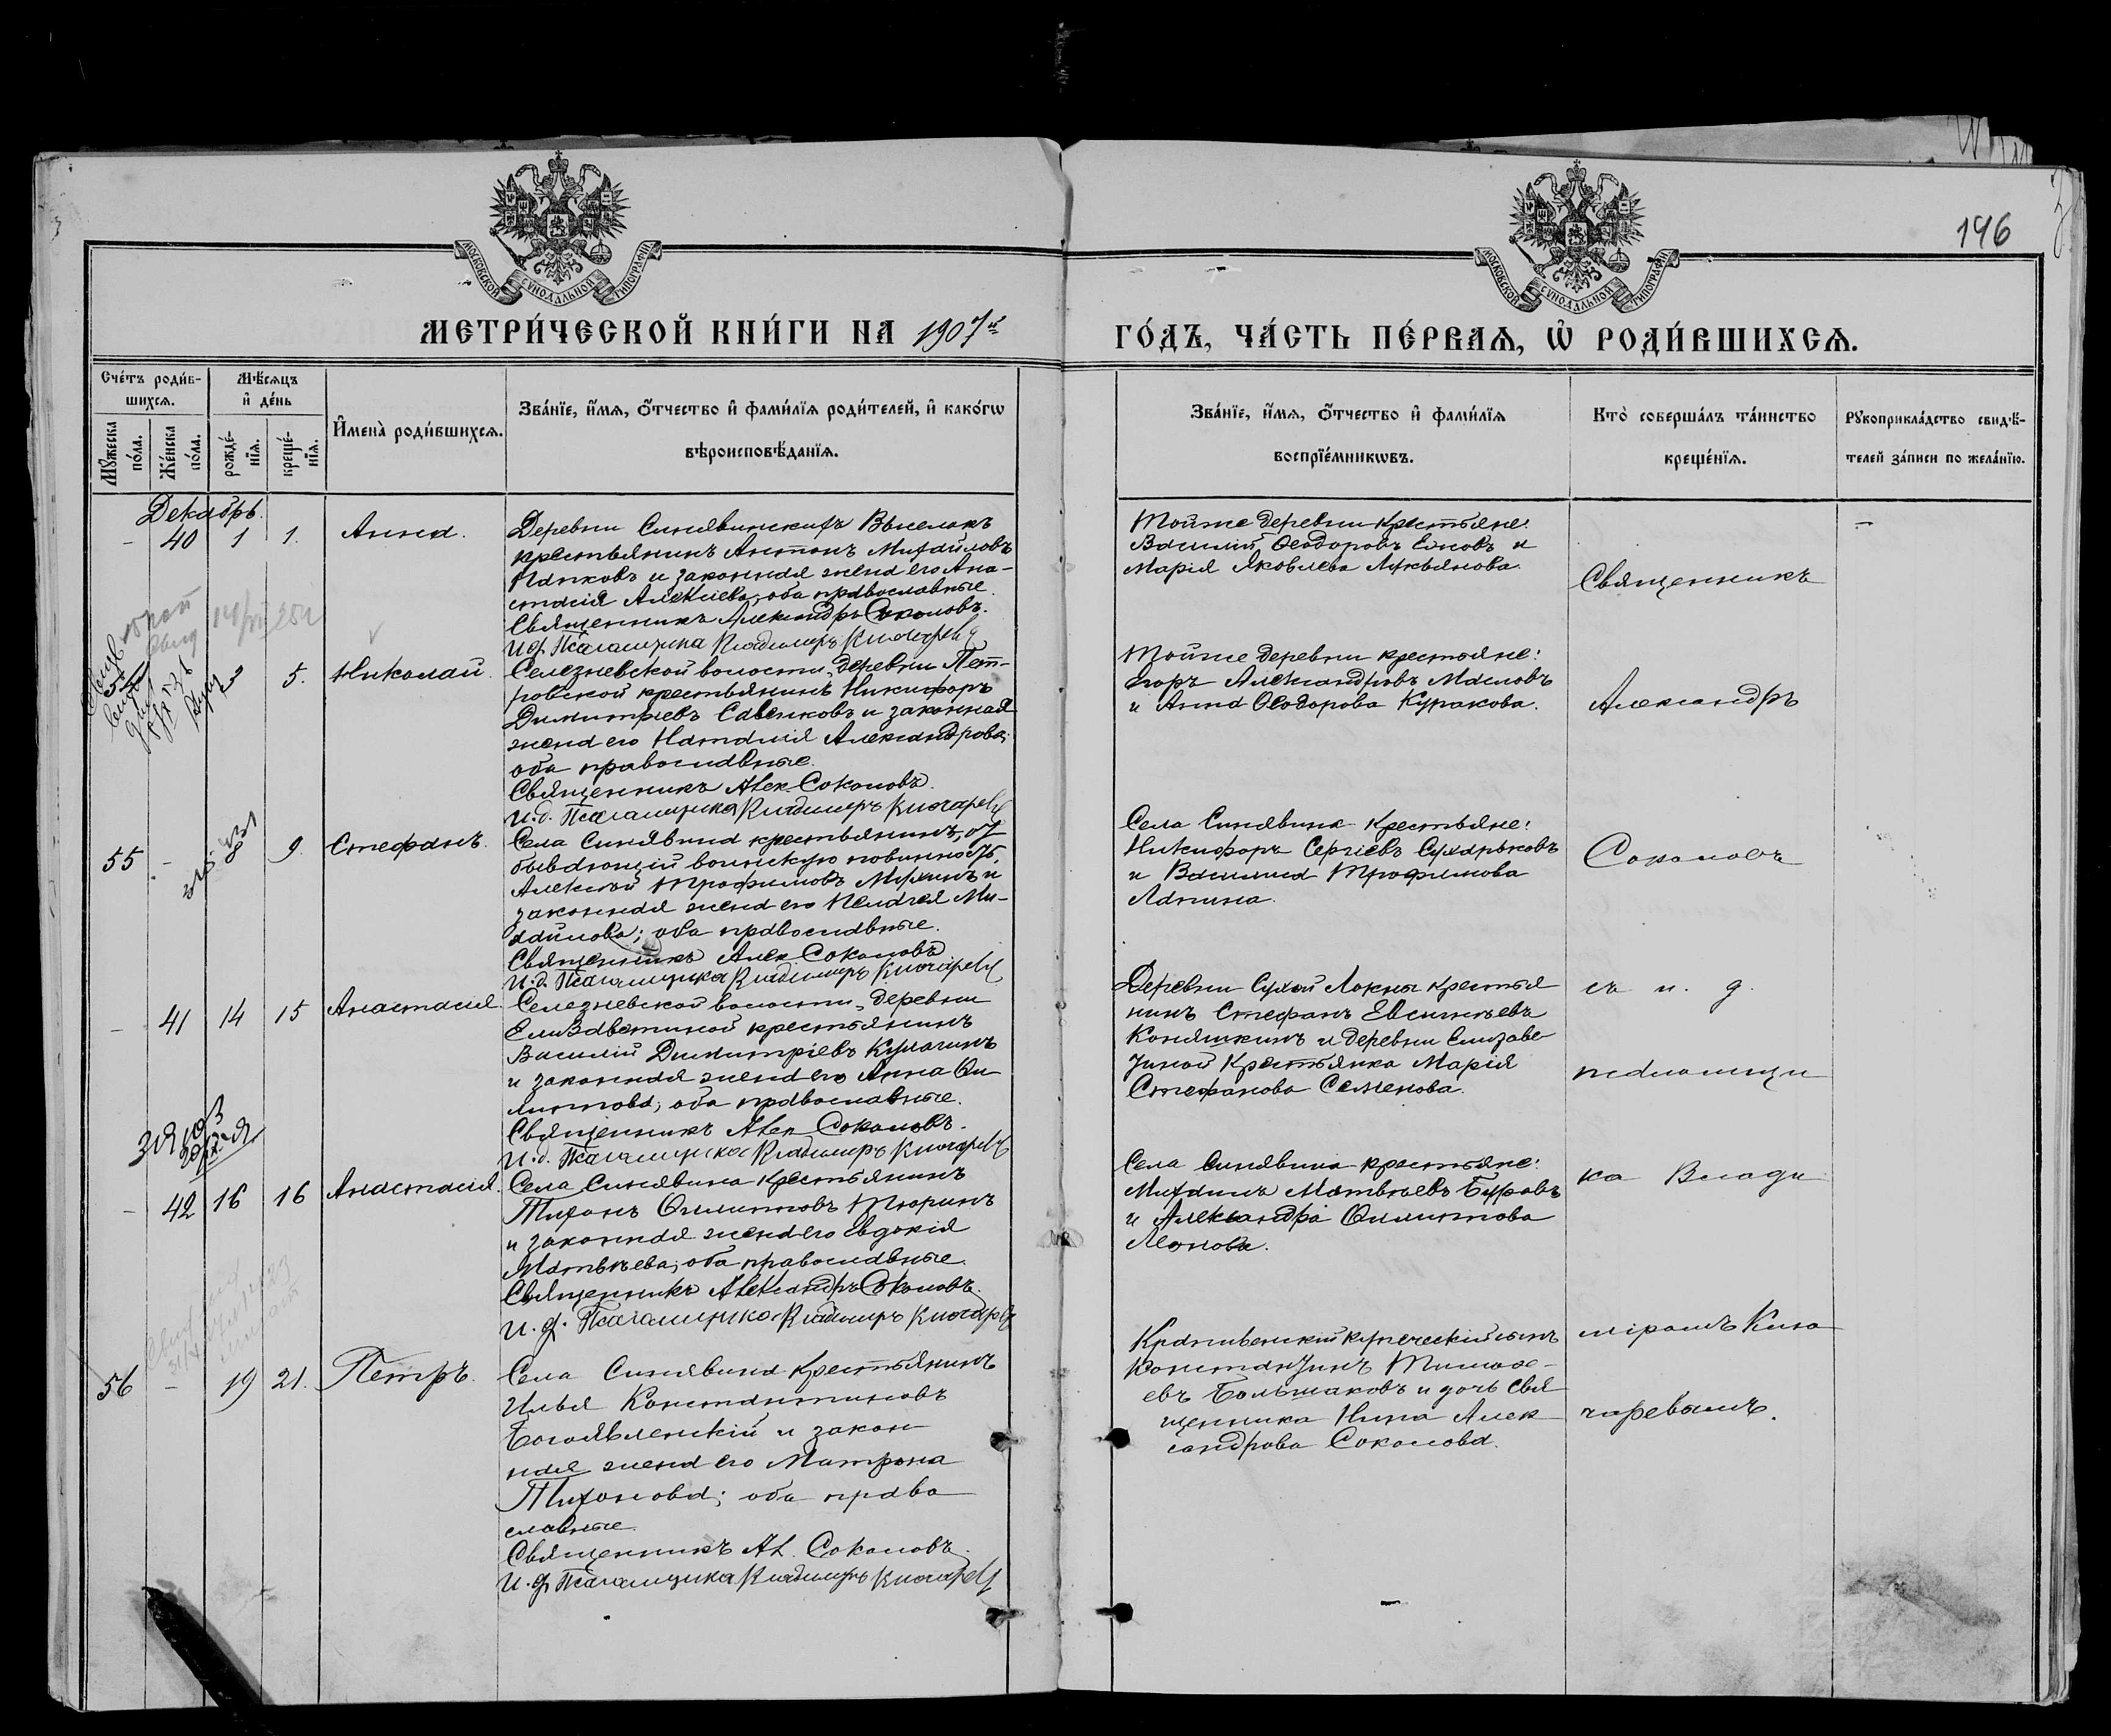 146
МОСКОВСКОЙ СУНОДАЛЬНОЙ ТИПОГРАФІИ
МОСКОВСКОЙ СУНОДАЛЬНОЙ ТИПОГРАФІИ
МЕТРИ́ЧЕСКОЙ КНИ́ГИ НА 1907й
ГО́ДЪ, ЧА́СТЬ ПЕ́РВАѦ, Ѡ҆ РОДИ́ВШИХСѦ.
Сче́тъ роди́в-
шихсѧ.
Мѣ́сѧцъ
и҆ де́нь
Мꙋ́жеска по́ла.
Же́нска по́ла.
рожде́-
нїѧ.
креще́-
нїѧ.
И҆мена̀ роди́вшихсѧ.
Зва́нїе, и҆́мѧ, ѻ҆́тчество и҆ фами́лїѧ роди́телей, и҆ како́гѡ
вѣроисповѣ́данїѧ.
Зва́нїе, и҆́мѧ, ѻ҆́тчество и҆ фами́лїѧ
воспрїе́мникѡвъ.
Кто̀ соверша́лъ та́инство
креще́нїѧ.
Рꙋкоприкла́дство свидѣ́-
телей за́писи по жела́нїю.
Декабрь.
- 40 1 1. Анна.
Деревни Синявинскихъ Выселокъ
крестьянинъ Антонъ Михайловъ
и законная жена его Ана-
стасія Алексіева, оба православные.
Священникъ Александръ Соколовъ.
И.д. Псаломщика Владимиръ Ключаревъ
Тойже деревни крестьяне:
Василій Ѳеодоровъ и
Марія Яковлева Лукьянова.
54 3 5. Николай.
Селезневской волости, деревни Пет-
ровской крестьянинъ Никифоръ
Димитріевъ Савенковъ и законная
жена его Наталія Александрова,
оба православные.
Священникъ Алек. Соколовъ.
И.д. Псаломщика Владимиръ Ключаревъ
Тойже деревни крестьяне:
Егоръ Александровъ Масловъ
и Анна Ѳеодорова Куракова.
55 - 8 9. Стефанъ.
Села Синявина крестьянинъ, от-
бывающій воинскую повинность,
Алексѣй Трофимовъ и
законная жена его Пелагея Ми-
хайлова; оба православные.
Священникъ Алек. Соколовъ
И.д. Псаломщика Владимиръ Ключаревъ
Села Синявина крестьяне:
Никифоръ Сергіевъ Сухоруковъ
и Василиса Трофимова
Лапина.
- 41 14 15 Анастасія.
Селезневской волости, деревни
Елизаветиной крестьянинъ
Василій Димитріевъ Кулагинъ
и законная жена его Анна Фи-
липпова; оба православные.
Священникъ Алек. Соколовъ.
И.д. Псаломщика Владимиръ Ключаревъ
Деревни Сухой Локны крестья
нинъ Стефанъ Евсигнѣевъ
Коняшкинъ и деревни Елизаве
тиной крестьянка Марія
Стефанова Семенова.
- 42 16 16 Анастасія.
Села Синявина крестьянинъ
Тихонъ Филипповъ Тюринъ
и законная жена его Евдокія
Матвѣева; оба православные.
Священникъ Александръ Соколовъ.
И.д. Псаломщика Владимиръ Ключаревъ
Села Синявина крестьяне:
Михаилъ Матвѣевъ Буровъ
и Александра Филиппова
Леонова.
56 - 19 21. Петръ.
Села Синявина крестьянинъ
Илья Константиновъ
Богоявленскій и закон
ная жена его Матрона
Тихонова; оба право
славные.
Священникъ Ал. Соколовъ.
И.д. Псаломщика Владимиръ Ключаревъ
Крапивенскій купеческій сынъ
Константинъ Тимоѳе-
евъ Большаковъ и дочь свя
щенника Нина Алек
сандрова Соколова.
Священникъ
Александръ
Соколовъ
съ и. д.
псаломщи
ка Влади
міромъ Клю
чаревымъ.